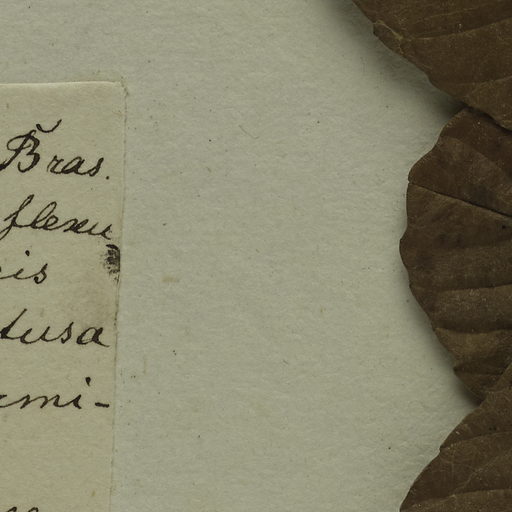 Bras.
flexu
is
tusa
mi-